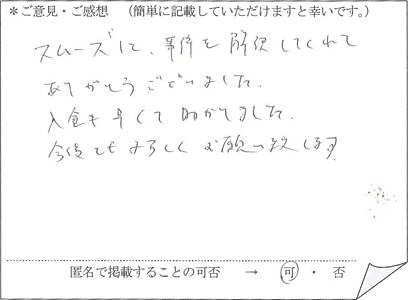 ＊ご意見・ご感想　（簡単に記載していただけますと幸いです。）
スムーズに、事件を解決してくれて
ありがとうございました。
入金も早くて助かりました。
今後ともよろしくお願い致します
匿名で掲載することの可否　→　可・否